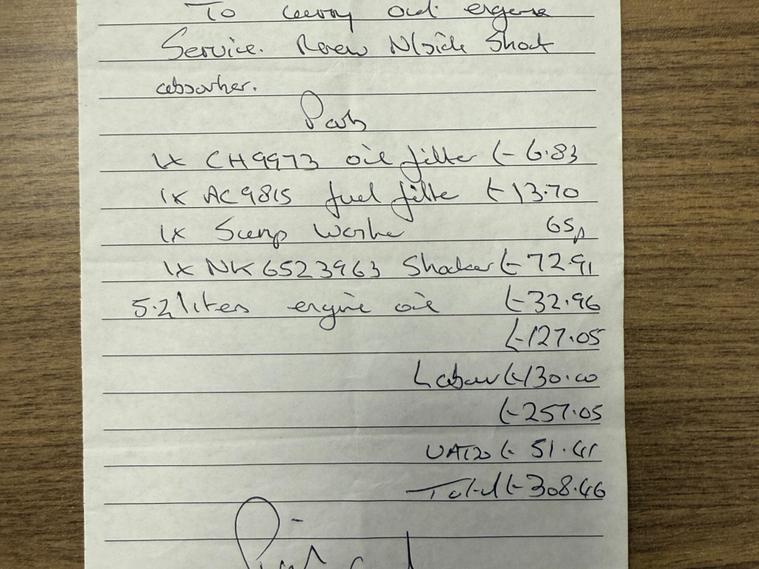 To carry out engine
Service. Renew N/Side Shock
absorber.
Parts
1x CH9973 oil filter £6.83
1x AC9815 fuel filte £13.70
1x Sump Washe 65p
1x NK 6523963 Shocker £72.91
5.2 liters engine oil £32.96
£127.05
Labour £130.00
£257.05
VAT20 £51.41
Total £308.46